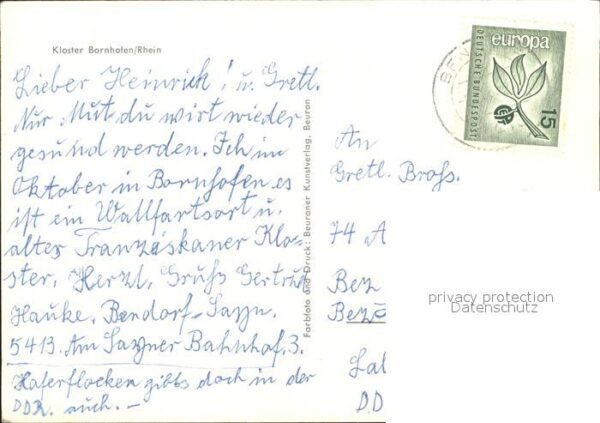 Kloster Bornhofen/Rhein
Lieber Heinrich! u. Gretl.
Nur Mut du wirt wieder
gesund werden. Ich im
Oktober in Bornhofen es
ist ein Wallfartsort u.
altes Franziskaner Klo-
ster, Herzl. Gruß Gertrud
Hauke, Bendorf-Sayn.
5413. Am Sayner Bahnhof, 3.
Haferflocken gibbs doch in der
DDR. auch. —
Farbfoto und Druck: Beuroner Kunstverlag, Beuron
BE
europa
DEUTSCHE BUNDESPOST
CEPT
15
An
Gretl. Broß.
74 A
Bez
Bez
privacy protection
Datenschutz
DD